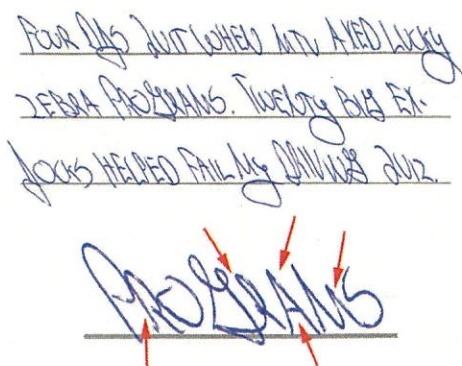 FOUR DJS QUIT WHEN MTV AXED LUCKY
ZEBRA PROGRAMS. TWENTY BIG EX-
JOCKS HELPED FAIL MY DRIVING QUIZ.
PROGRAMS